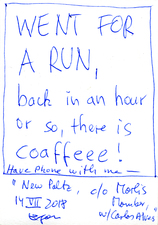 WENT FOR
A RUN,
back in an hour
or so, there is
coaffeee!
Have Phone with me —
"New Paltz, c/o
14 VII 2018 w/Carlos Alves"